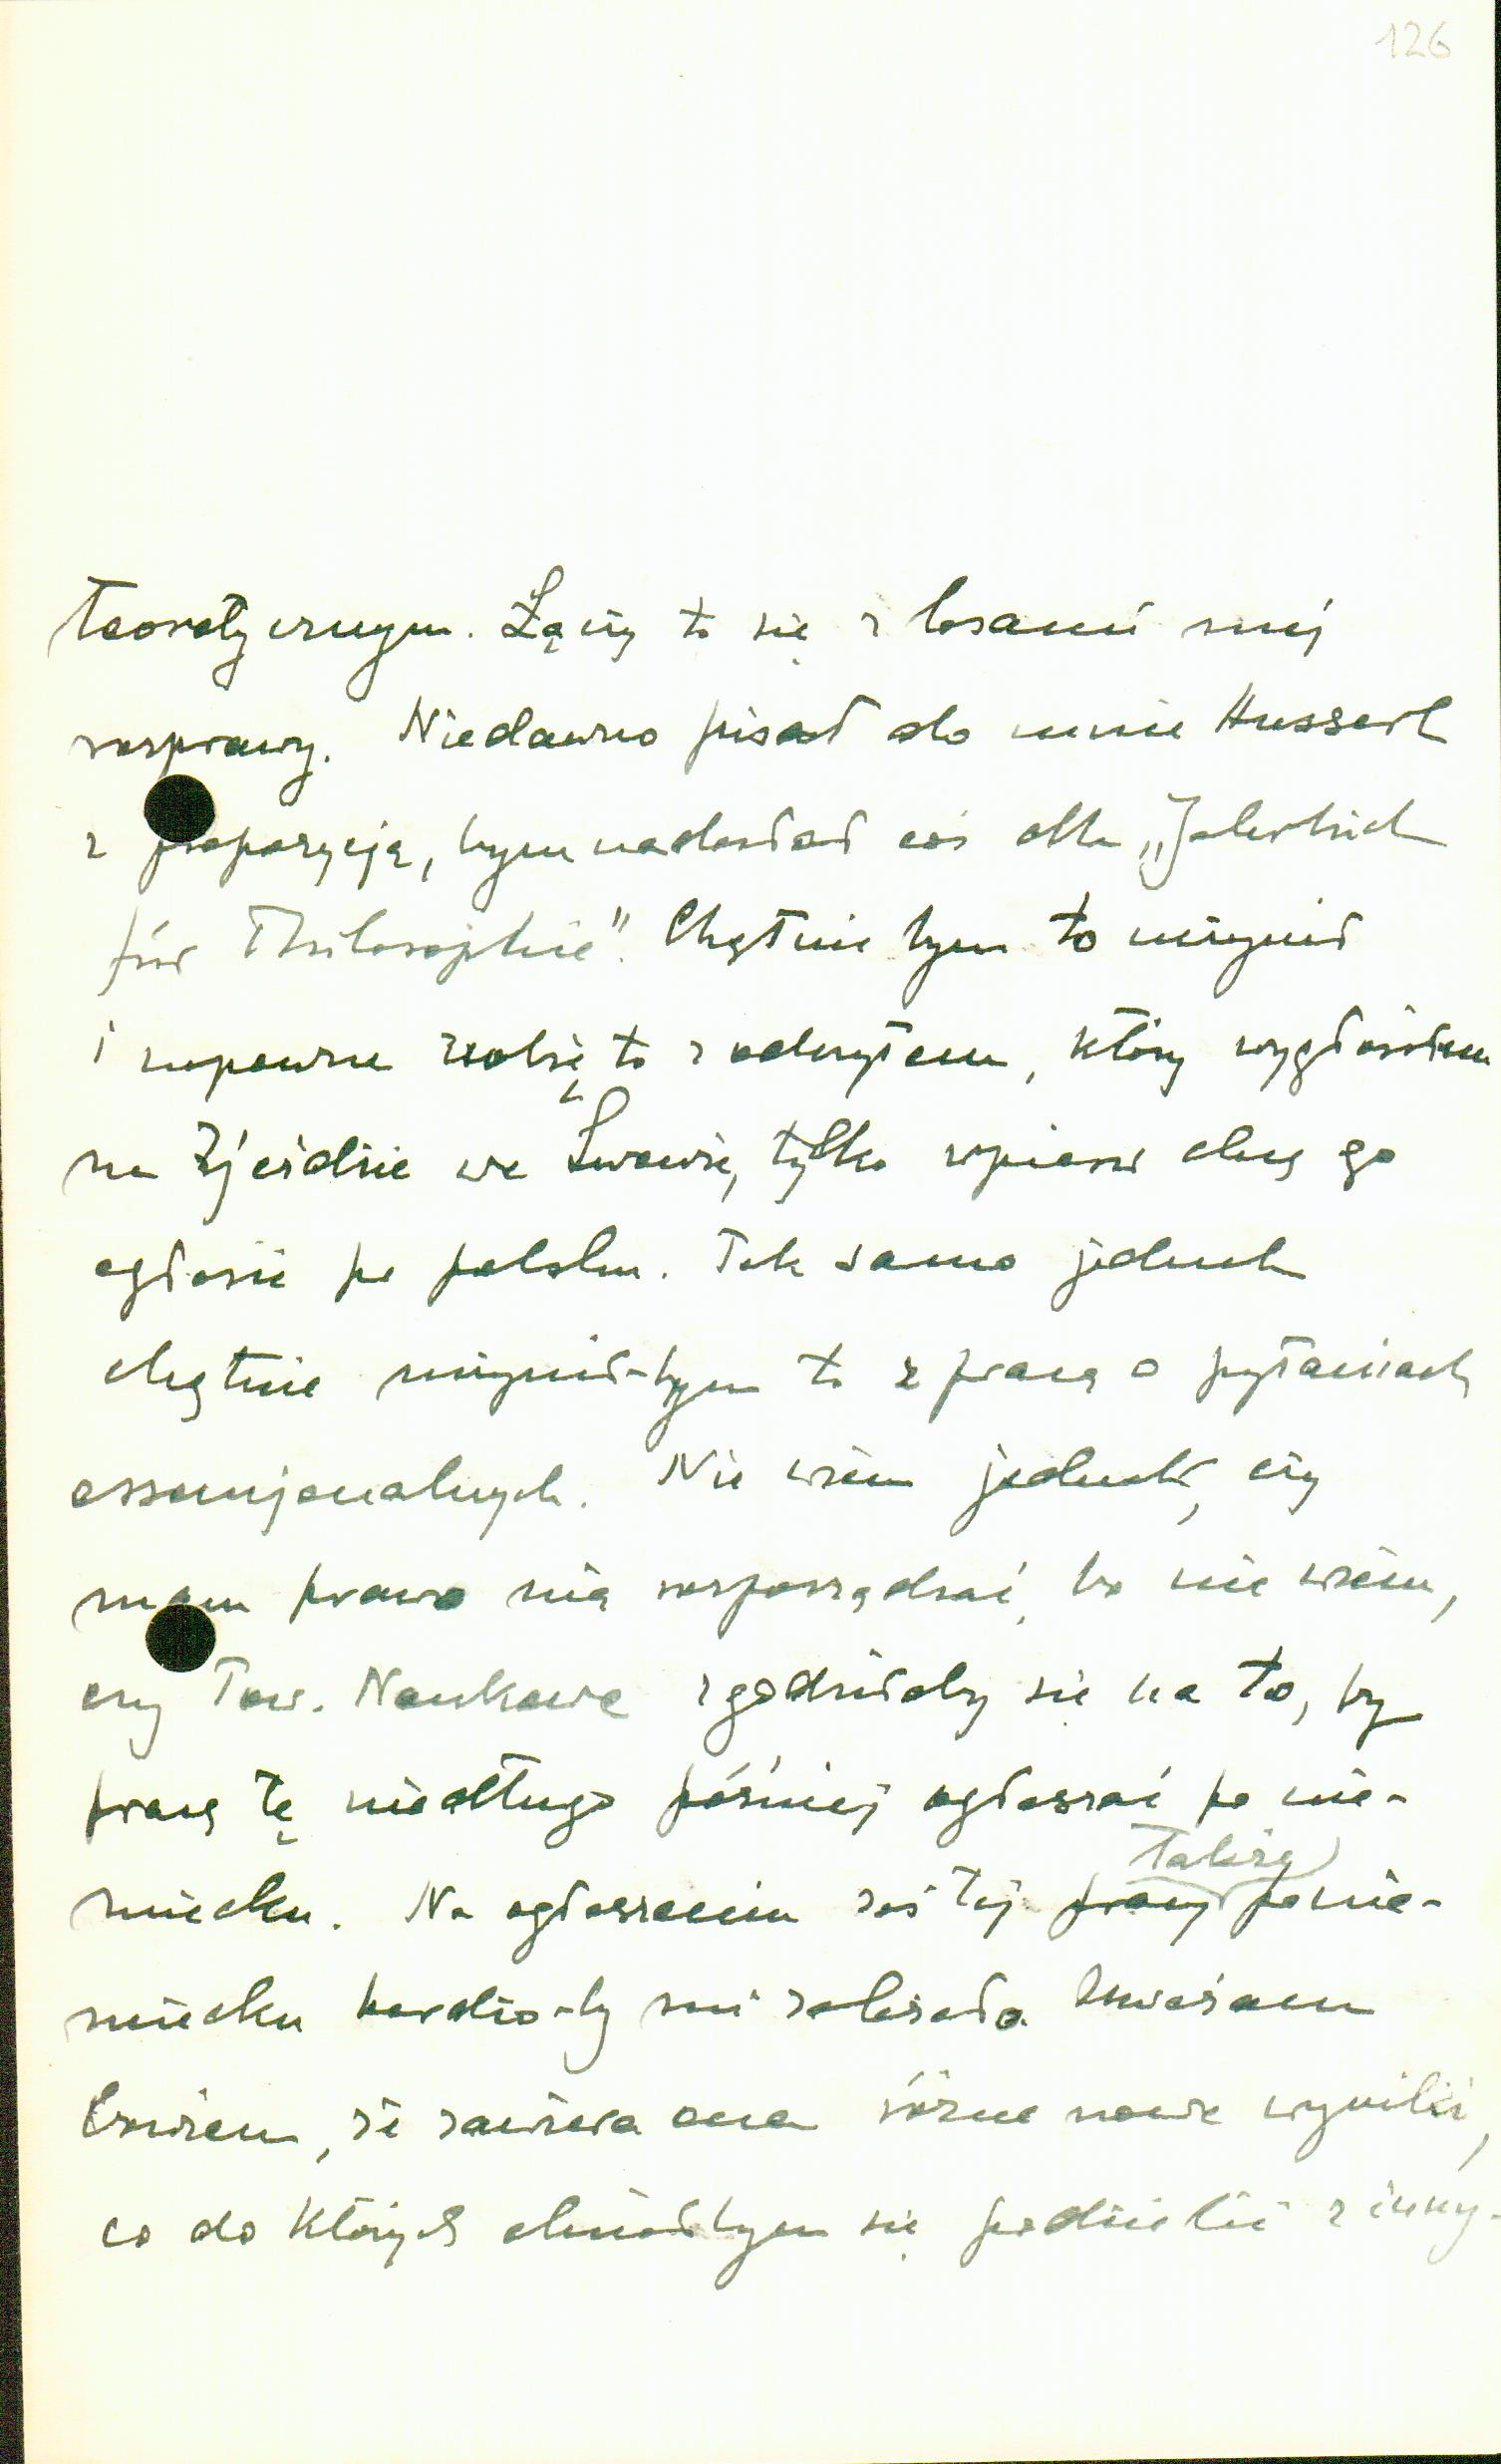 126
teoretycznym. Łączy to się z losami mej
rozprawy. Niedawno pisał do mnie Husserl
z propozycją, bym nadesłał coś dla „Jahrbuch
für Philosophie”. Chętnie bym to uczynił
i zapewne zrobię to z odczytem, który wygłosiłem
na Zjeździe we Lwowie, tylko wpierw chcę go
ogłosić po polsku. Tak samo jednak
chętnie uczynił-bym to z pracą o pytaniach
essencjonalnych. Nie wiem jednak, czy
mam prawo nią rozporządzać, bo nie wiem,
czy Tow. Naukowe zgodziłoby się na to, by
pracę tę niedługo później ogłaszać po nie-
miecku. Na ogłoszeniu zaś tej pracy także po nie-
miecku bardzo-by mi zależało. Uważam
bowiem, że zawiera ona różne nowe wyniki,
co do których chciałbym się podzielić z inny-